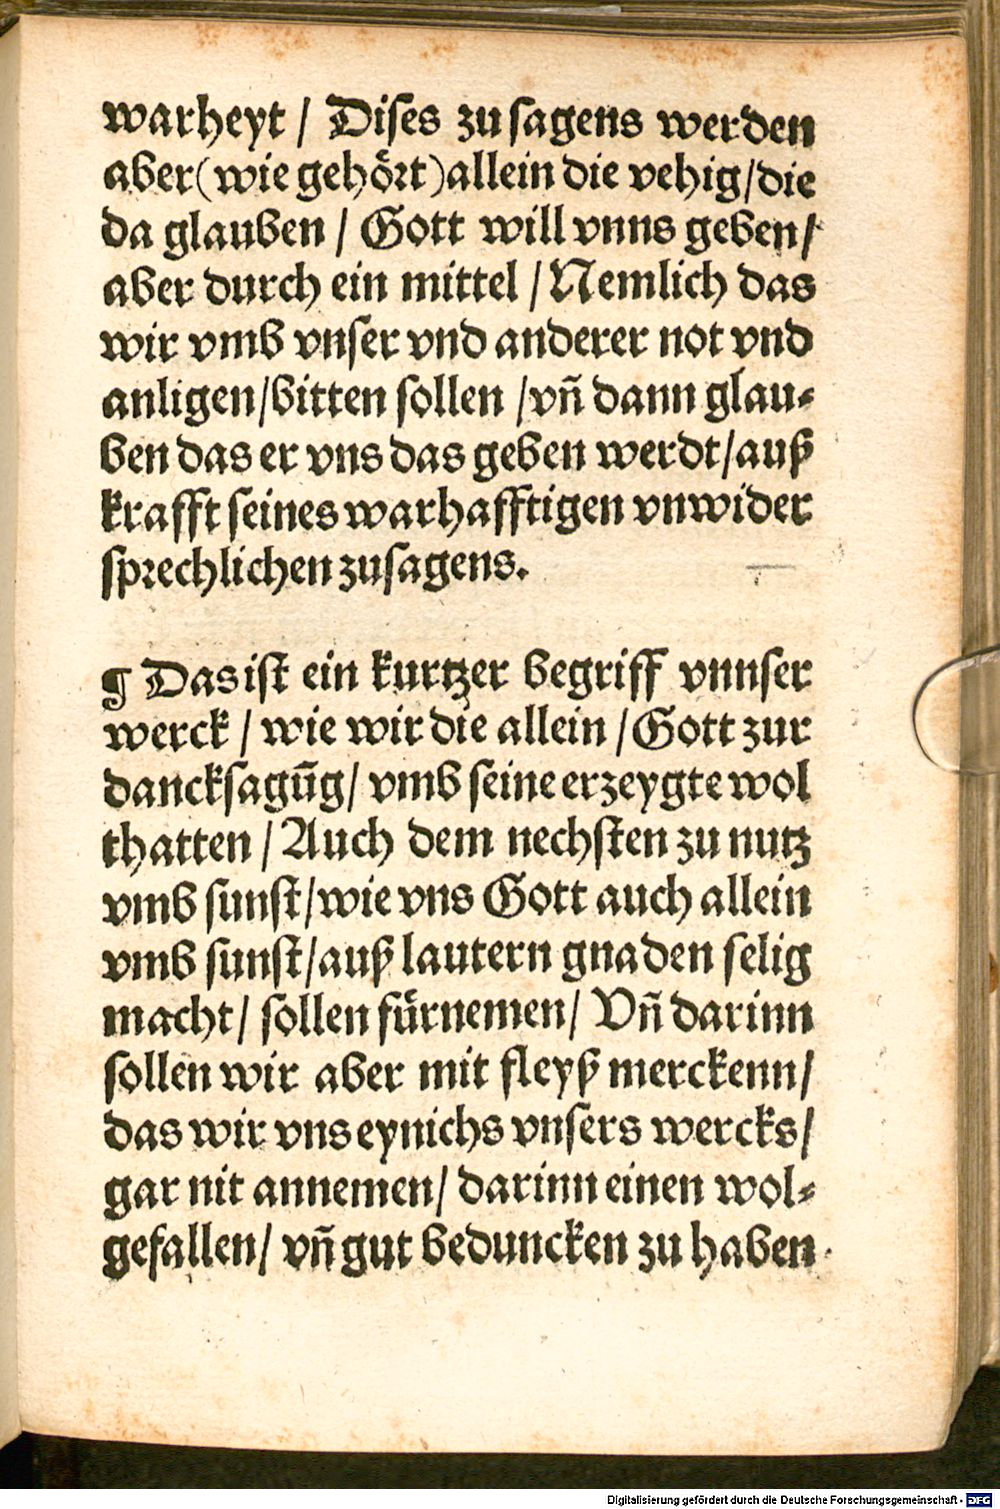 warheyt / Dises zu sagens werden
aber (wie gehört) allein die vehig / die
da glauben / Gott will vnns geben /
aber durch ein mittel / Nemlich das
wir vmb vnser vnd anderer not vnd
anligen / bitten sollen / vñ dann glau⸗
ben das er vns das geben werdt / auß
krafft seines warhafftigen vnwider
sprechlichen zusagens.
¶ Das ist ein kurtzer begriff vnnser
werck / wie wir die allein / Gott zur
dancksagūg / vmb seine erzeygte wol
thatten / Auch dem nechsten zu nutz
vmb sunst / wie vns Gott auch allein
vmb sunst / auß lautern gnaden selig
macht / sollen fürnemen / Vñ darinn
sollen wir aber mit fleyß merckenn /
das wir vns eynichs vnsers wercks /
gar nit annemen / darinn einen wol⸗
gefallen / vñ gut beduncken zu haben.
Digitalisierung gefördert durch die Deutsche Forschungsgemeinschaft - DFG